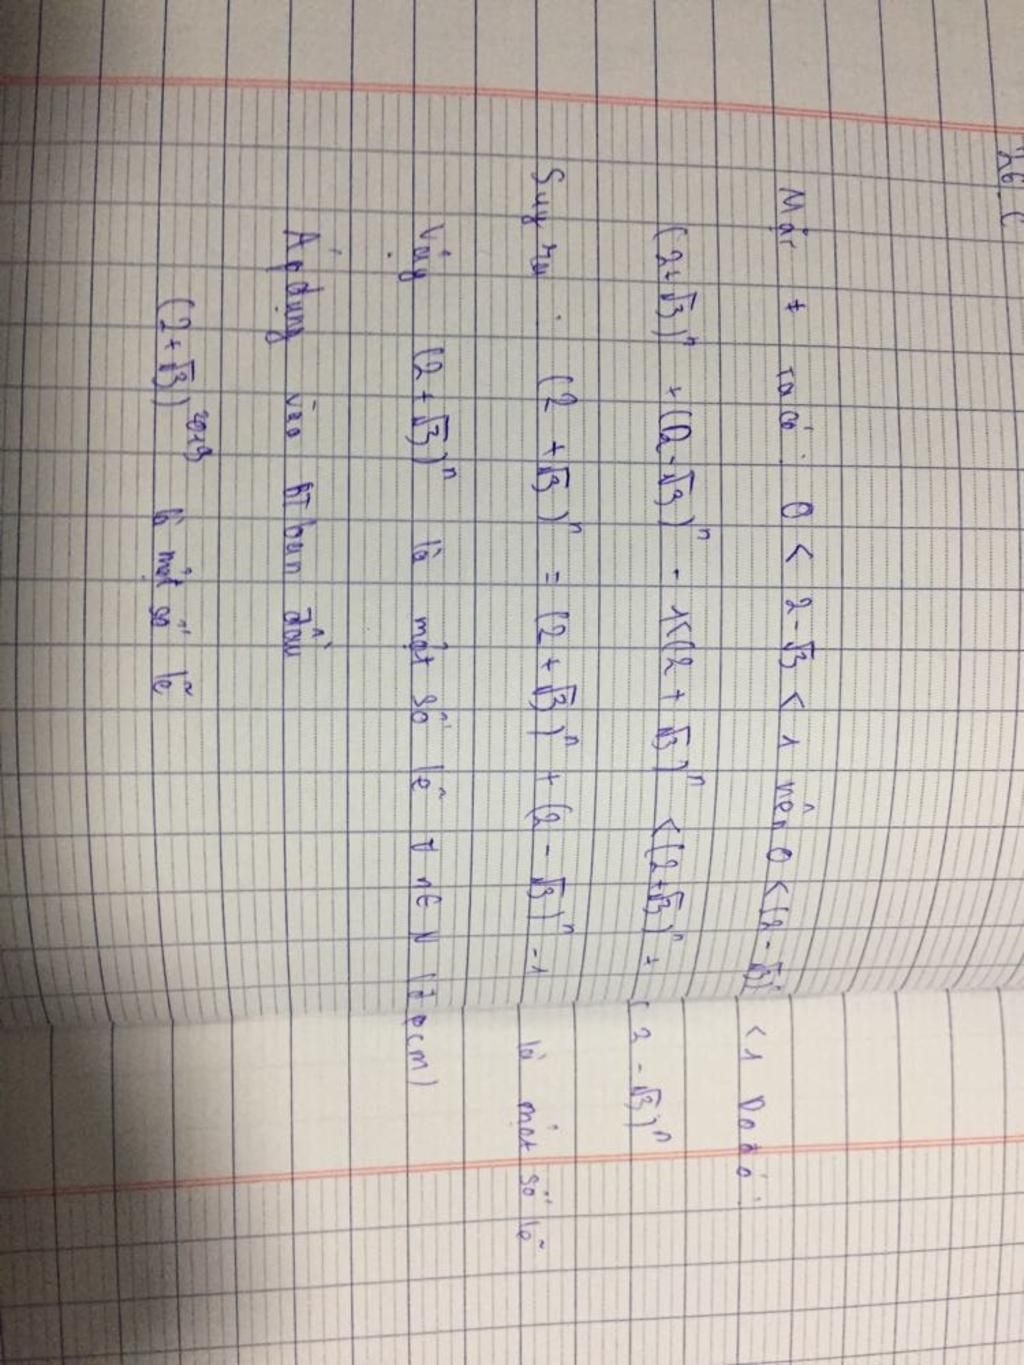 Mặt ≠ ta có: 0 < 2-√3 < 1 nên 0 < (2-√3)ⁿ < 1 Do đó:
(2+√3)ⁿ + (2-√3)ⁿ - 1 < (2+√3)ⁿ < (2+√3)ⁿ + (2-√3)ⁿ
Suy ra: (2+√3)ⁿ = (2+√3)ⁿ + (2-√3)ⁿ - 1 là một số lẽ
Vậy (2+√3)ⁿ là một số lẽ ∀ n∈N (đpcm)
Áp dụng vào BT ban đầu
(2+√3)²⁰¹⁹ là một số lẽ